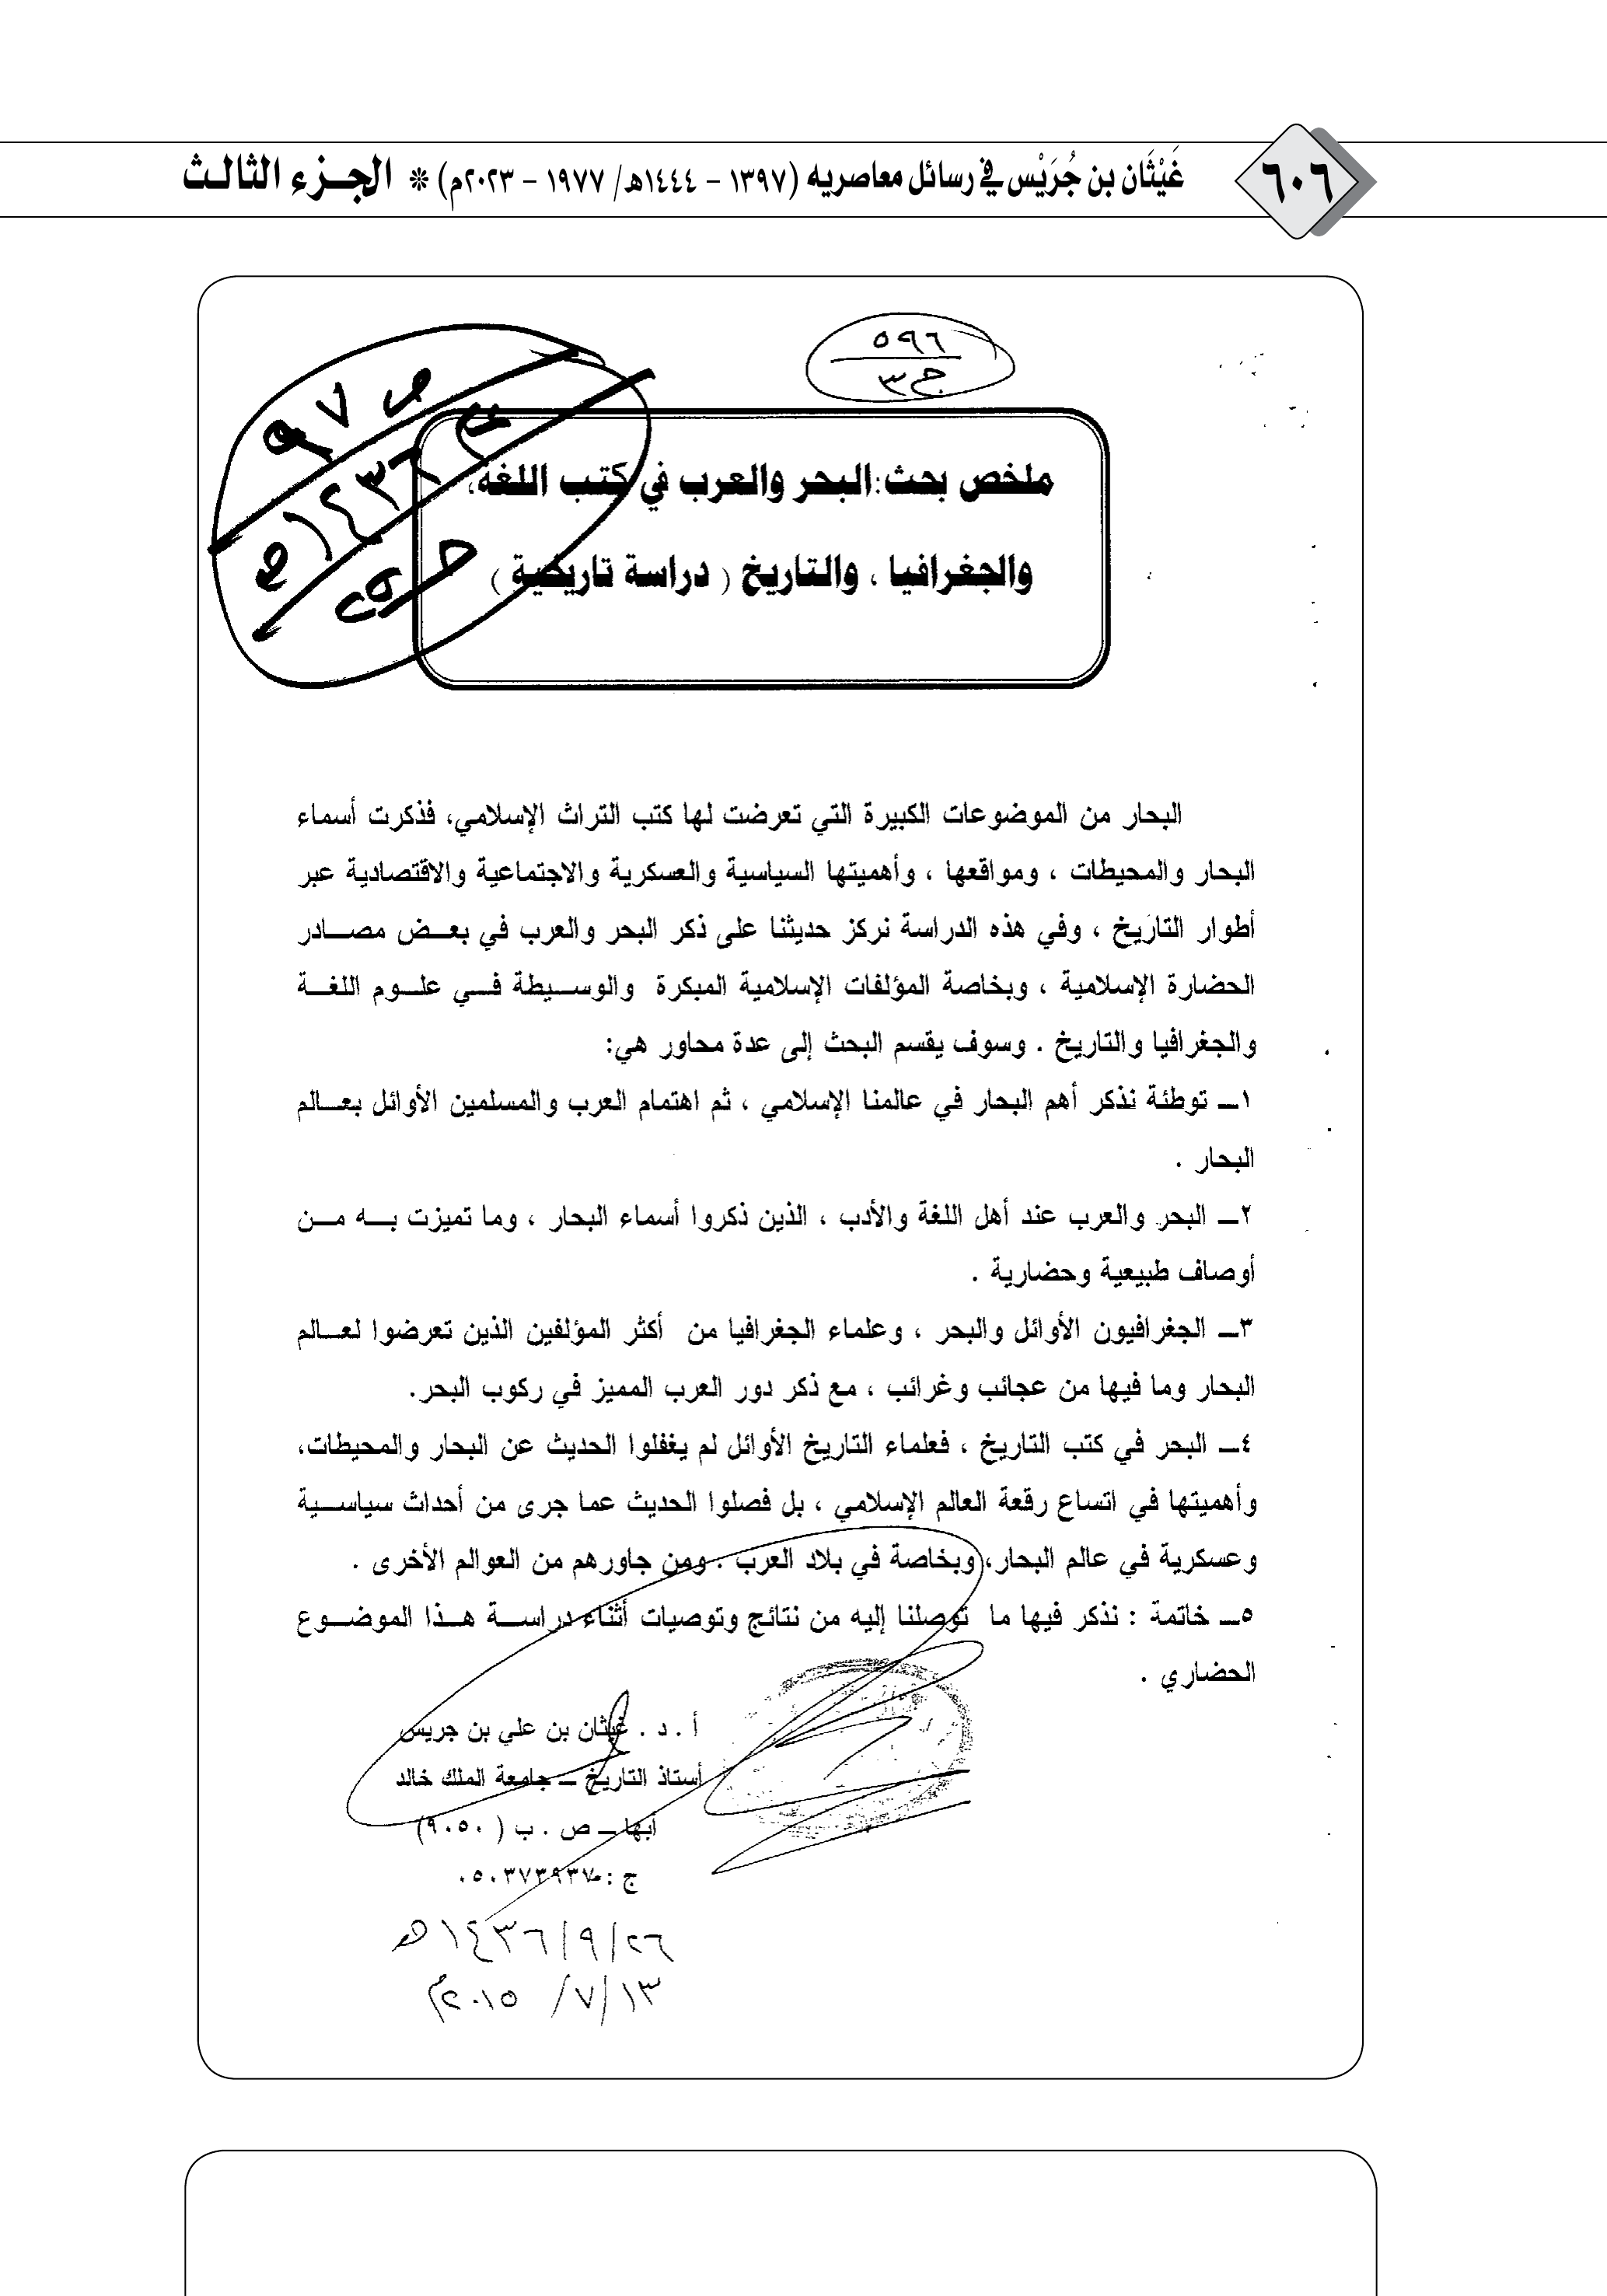 ٦٠٦
غَيْثَان بن جُرَيْس في رسائل معاصريه (١٣٩٧ - ١٤٤٤هـ/ ١٩٧٧ - ٢٠٢٣م) * الجـزء الثالـث
٥٩٦
ج٣
ص ٩٧
١٤٣٦
ملخص بحث:البحر والعرب في كتب اللغة،
والجغرافيا ، والتاريخ ( دراسة تاريخية )
البحار من الموضوعات الكبيرة التي تعرضت لها كتب التراث الإسلامي، فذكرت أسماء
البحار والمحيطات ، ومواقعها ، وأهميتها السياسية والعسكرية والاجتماعية والاقتصادية عبر
أطوار التاريخ ، وفي هذه الدراسة نركز حديثنا على ذكر البحر والعرب في بعـض مصـادر
الحضارة الإسلامية ، وبخاصة المؤلفات الإسلامية المبكرة والوسـيطة فـي علـوم اللغـة
والجغرافيا والتاريخ . وسوف يقسم البحث إلى عدة محاور هي:
١ـ توطئة نذكر أهم البحار في عالمنا الإسلامي ، ثم اهتمام العرب والمسلمين الأوائل بعـالم
البحار .
٢ـ البحر والعرب عند أهل اللغة والأدب ، الذين ذكروا أسماء البحار ، وما تميزت بـه مـن
أوصاف طبيعية وحضارية .
٣ـ الجغرافيون الأوائل والبحر ، وعلماء الجغرافيا من أكثر المؤلفين الذين تعرضوا لعـالم
البحار وما فيها من عجائب وغرائب ، مع ذكر دور العرب المميز في ركوب البحر.
٤ـ البحر في كتب التاريخ ، فعلماء التاريخ الأوائل لم يغفلوا الحديث عن البحار والمحيطات،
وأهميتها في اتساع رقعة العالم الإسلامي ، بل فصلوا الحديث عما جرى من أحداث سياسـية
وعسكرية في عالم البحار، وبخاصة في بلاد العرب . ومن جاورهم من العوالم الأخرى .
٥ـ خاتمة : نذكر فيها ما توصلنا إليه من نتائج وتوصيات أثناء دراسـة هـذا الموضـوع
الحضاري .
أ . د . غيثان بن علي بن جريس
أستاذ التاريخ ـ جامعة الملك خالد
أبها ـ ص . ب ( ٩٠٥٠)
ج :
٢٦/٩/١٤٣٦هـ
١٣/٧/ ٢٠١٥م